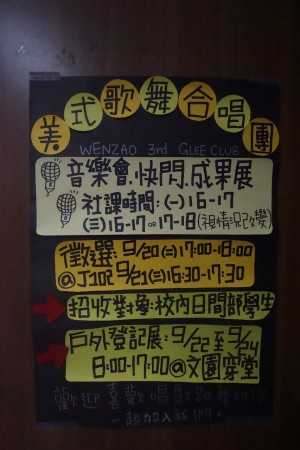 美式歌舞合唱團
WENZAO 3rd GLEE CLUB
音樂會.快閃.成果展
社課時間:(一)16-17
(三)16-17 or 17-18(視情況改變)
徵選:9/20(二)17:00-18:00
@J102 9/21(三)16:30-17:30
招收對象:校內日間部學生
戶外登記展:9/22至9/24
8:00-17:00@文園穿堂
歡迎喜歡唱歌跳舞的你
一起加入我們。